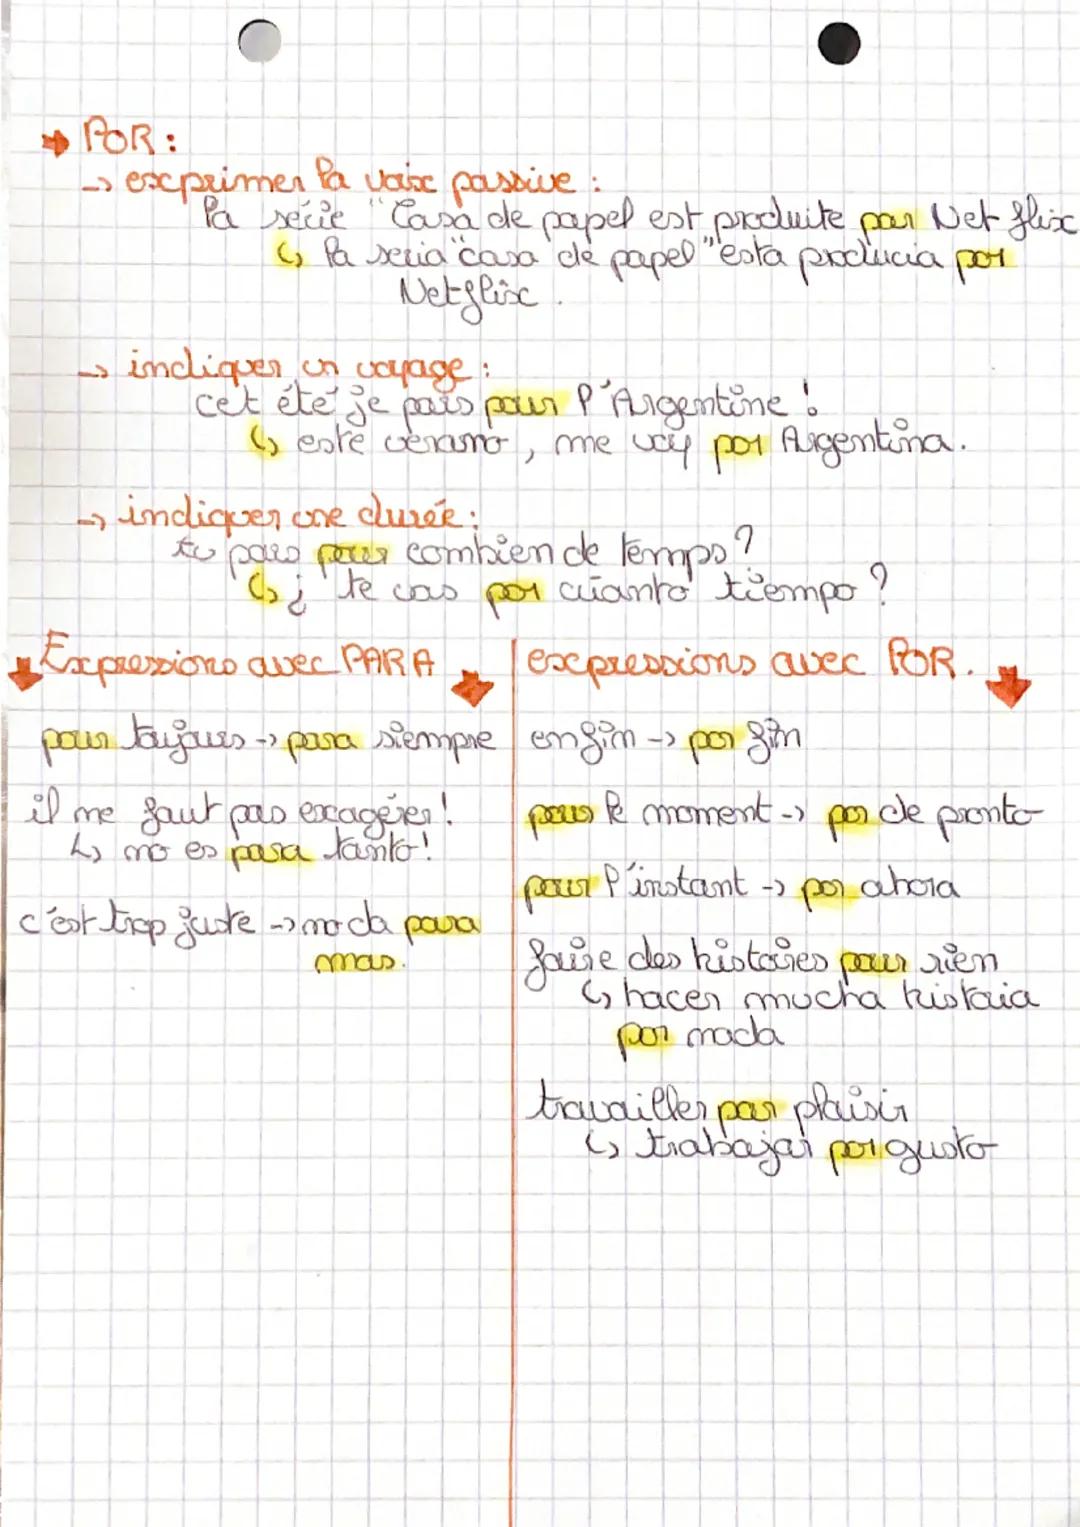 → POR :
→ exprimer la voix passive :
la série "Casa de papel est produite par Netflix
↳ la seria "casa de papel" esta producia por
Netflix.
→ indiquer un voyage :
cet été je pars pour l'Argentine !
↳ este verano, me voy por Argentina.
→ indiquer une durée :
tu pars pour combien de temps ?
↳ ¿ te vas por cuanto tiempo ?
Expressions avec PARA
pour toujours → para siempre
il ne faut pas exagérer !
↳ no es para tanto !
c'est trop juste → no da para
mas.
expressions avec POR.
enfin → por fin
pour le moment → por de pronto
pour l'instant → por ahora
faire des histoires pour rien
↳ hacer mucha historia
por nada
travailler par plaisir
↳ trabajar por gusto